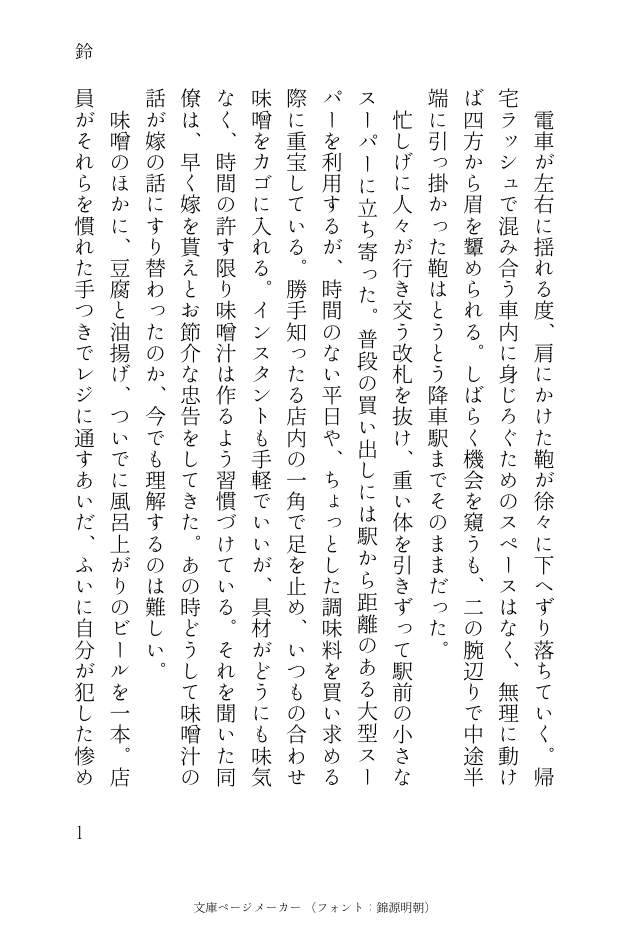 鈴
　電車が左右に揺れる度、肩にかけた鞄が徐々に下へずり落ちていく。帰
宅ラッシュで混み合う車内に身じろぐためのスペースはなく、無理に動け
ば四方から眉を顰められる。しばらく機会を窺うも、二の腕辺りで中途半
端に引っ掛かった鞄はとうとう降車駅までそのままだった。
　忙しげに人々が行き交う改札を抜け、重い体を引きずって駅前の小さな
スーパーに立ち寄った。普段の買い出しには駅から距離のある大型スー
パーを利用するが、時間のない平日や、ちょっとした調味料を買い求める
際に重宝している。勝手知ったる店内の一角で足を止め、いつもの合わせ
味噌をカゴに入れる。インスタントも手軽でいいが、具材がどうにも味気
なく、時間の許す限り味噌汁は作るよう習慣づけている。それを聞いた同
僚は、早く嫁を貰えとお節介な忠告をしてきた。あの時どうして味噌汁の
話が嫁の話にすり替わったのか、今でも理解するのは難しい。
　味噌のほかに、豆腐と油揚げ、ついでに風呂上がりのビールを一本。店
員がそれらを慣れた手つきでレジに通すあいだ、ふいに自分が犯した惨め
1
文庫ページメーカー （フォント：錦源明朝）